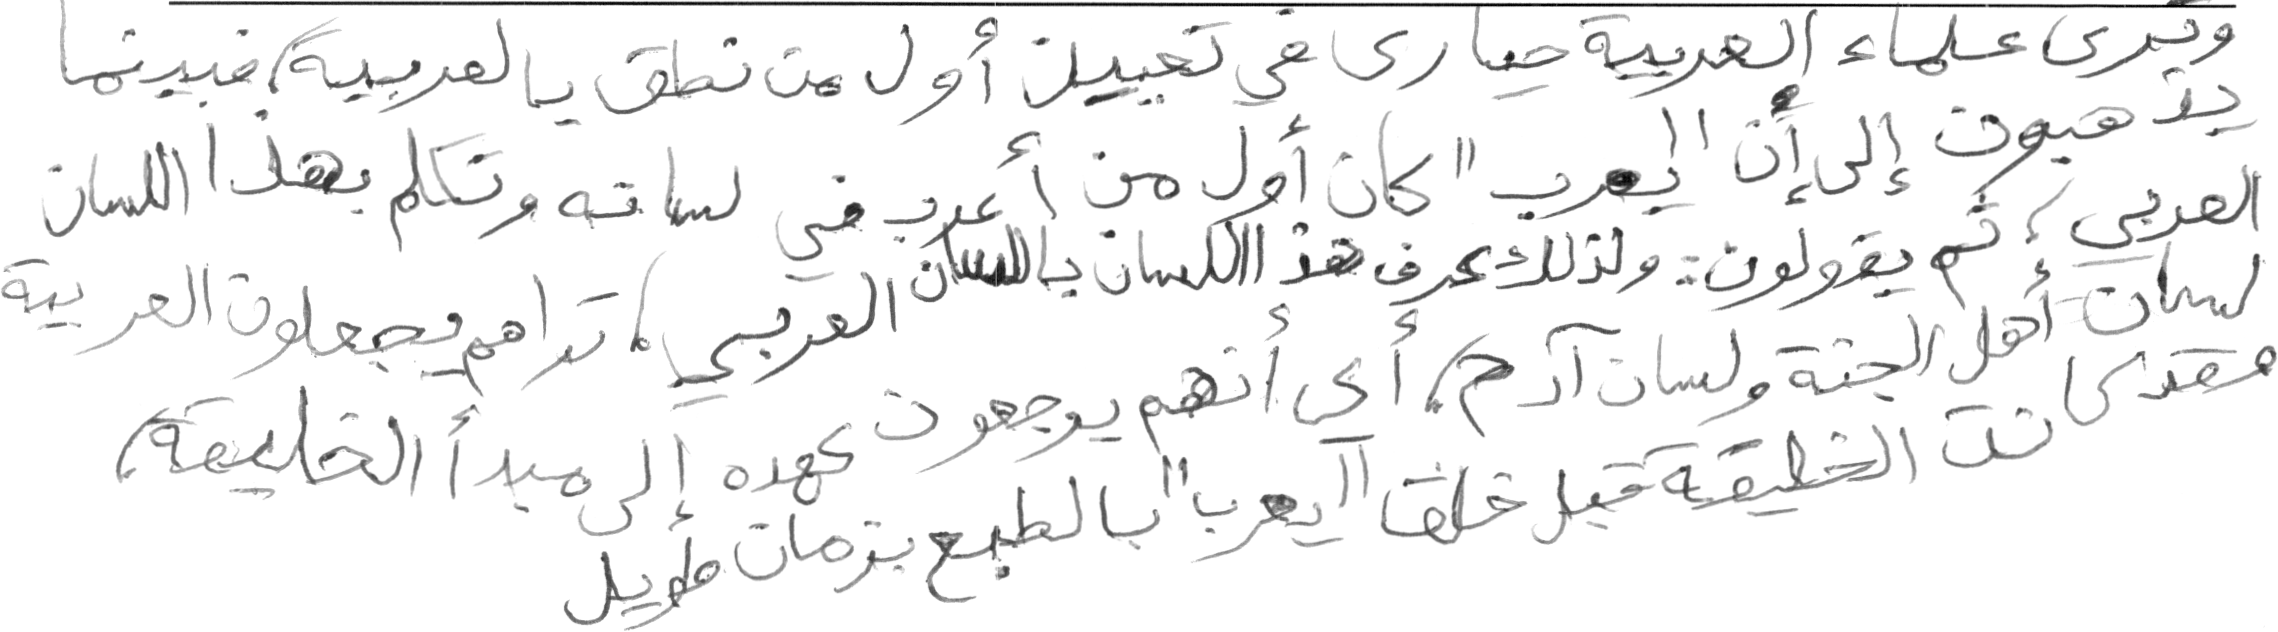 وترى علماء العربية حيارى في تعيين أول من نطق بالعربية، فبينما
يذهبون إلى أن "يعرب" كان أول من أعرب في لسانه وتكلم بهذا اللسان
العربي، ثم يقولون: ولذلك عرف هذا اللسان باللسان العربي، تراهم يجعلون العربية
لسان أهل الجنة ولسان آدم، أي أنهم يرجعون عهده إلى مبدأ الخليقة،
وقد كانت الخليقة قبل خلق "يعرب" بالطبع بزمان طويل